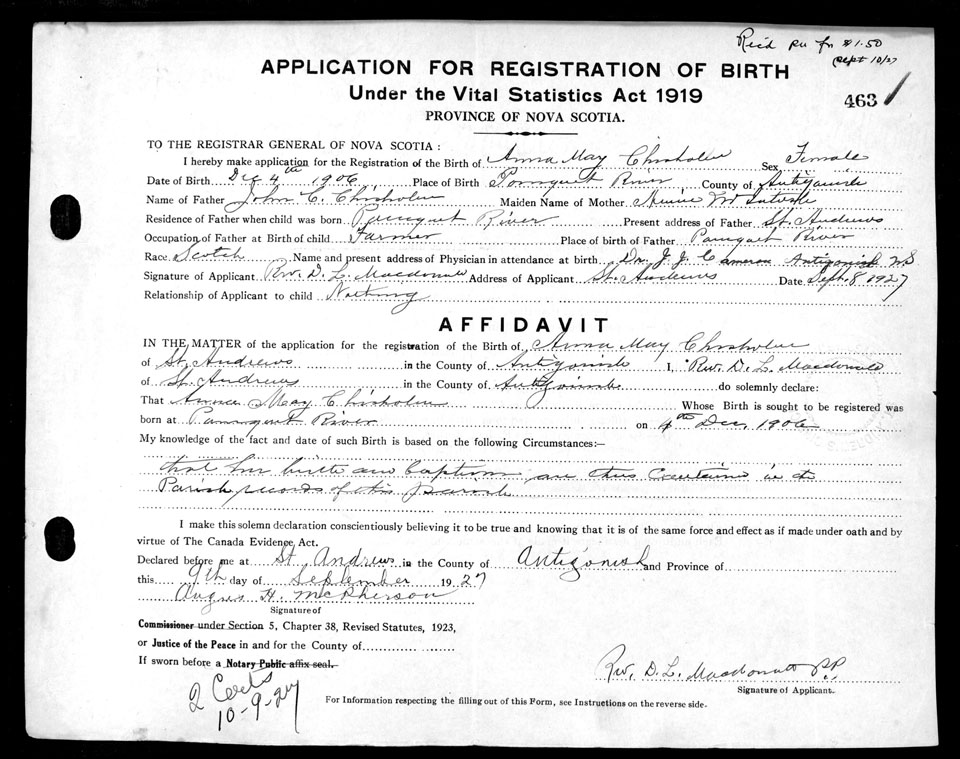 Rec'd $1.50
Sept 10/27
APPLICATION FOR REGISTRATION OF BIRTH
Under the Vital Statistics Act 1919
463
PROVINCE OF NOVA SCOTIA.
TO THE REGISTRAR GENERAL OF NOVA SCOTIA :
I hereby make application for the Registration of the Birth of Anna May Chisholm Sex Female
Date of Birth Dec 4th 1906 Place of Birth Pomquet River County of Antigonish
Name of Father John C. Chisholm Maiden Name of Mother
Residence of Father when child was born Pomquet River Present address of Father St. Andrews
Occupation of Father at Birth of child Farmer Place of birth of Father Pomquet River
Race Scotch Name and present address of Physician in attendance at birth Dr. J. J. Cameron Antigonish NS
Signature of Applicant Rev. D. L. Macdonald Address of Applicant St. Andrews Date Sept. 8 1927
Relationship of Applicant to child Nothing
AFFIDAVIT
IN THE MATTER of the application for the registration of the Birth of Anna May Chisholm
of St. Andrews in the County of Antigonish I, Rev. D. L. Macdonald
of St. Andrews in the County of Antigonish do solemnly declare:
That Anna May Chisholm Whose Birth is sought to be registered was
born at Pomquet River on 4th Dec. 1906
My knowledge of the fact and date of such Birth is based on the following Circumstances:—
that her birth and baptism are thus contained in the
Parish records of this parish
I make this solemn declaration conscientiously believing it to be true and knowing that it is of the same force and effect as if made under oath and by
virtue of The Canada Evidence Act.
Declared before me at St. Andrews in the County of Antigonish and Province of
this 9th day of September 1927
Angus H. McPherson
Signature of
Commissioner under Section 5, Chapter 38, Revised Statutes, 1923,
or Justice of the Peace in and for the County of
If sworn before a Notary Public affix seal.
Rev. D. L. Macdonald P.P.
Signature of Applicant.
2 Certs
10-9-27
For Information respecting the filling out of this Form, see Instructions on the reverse side.